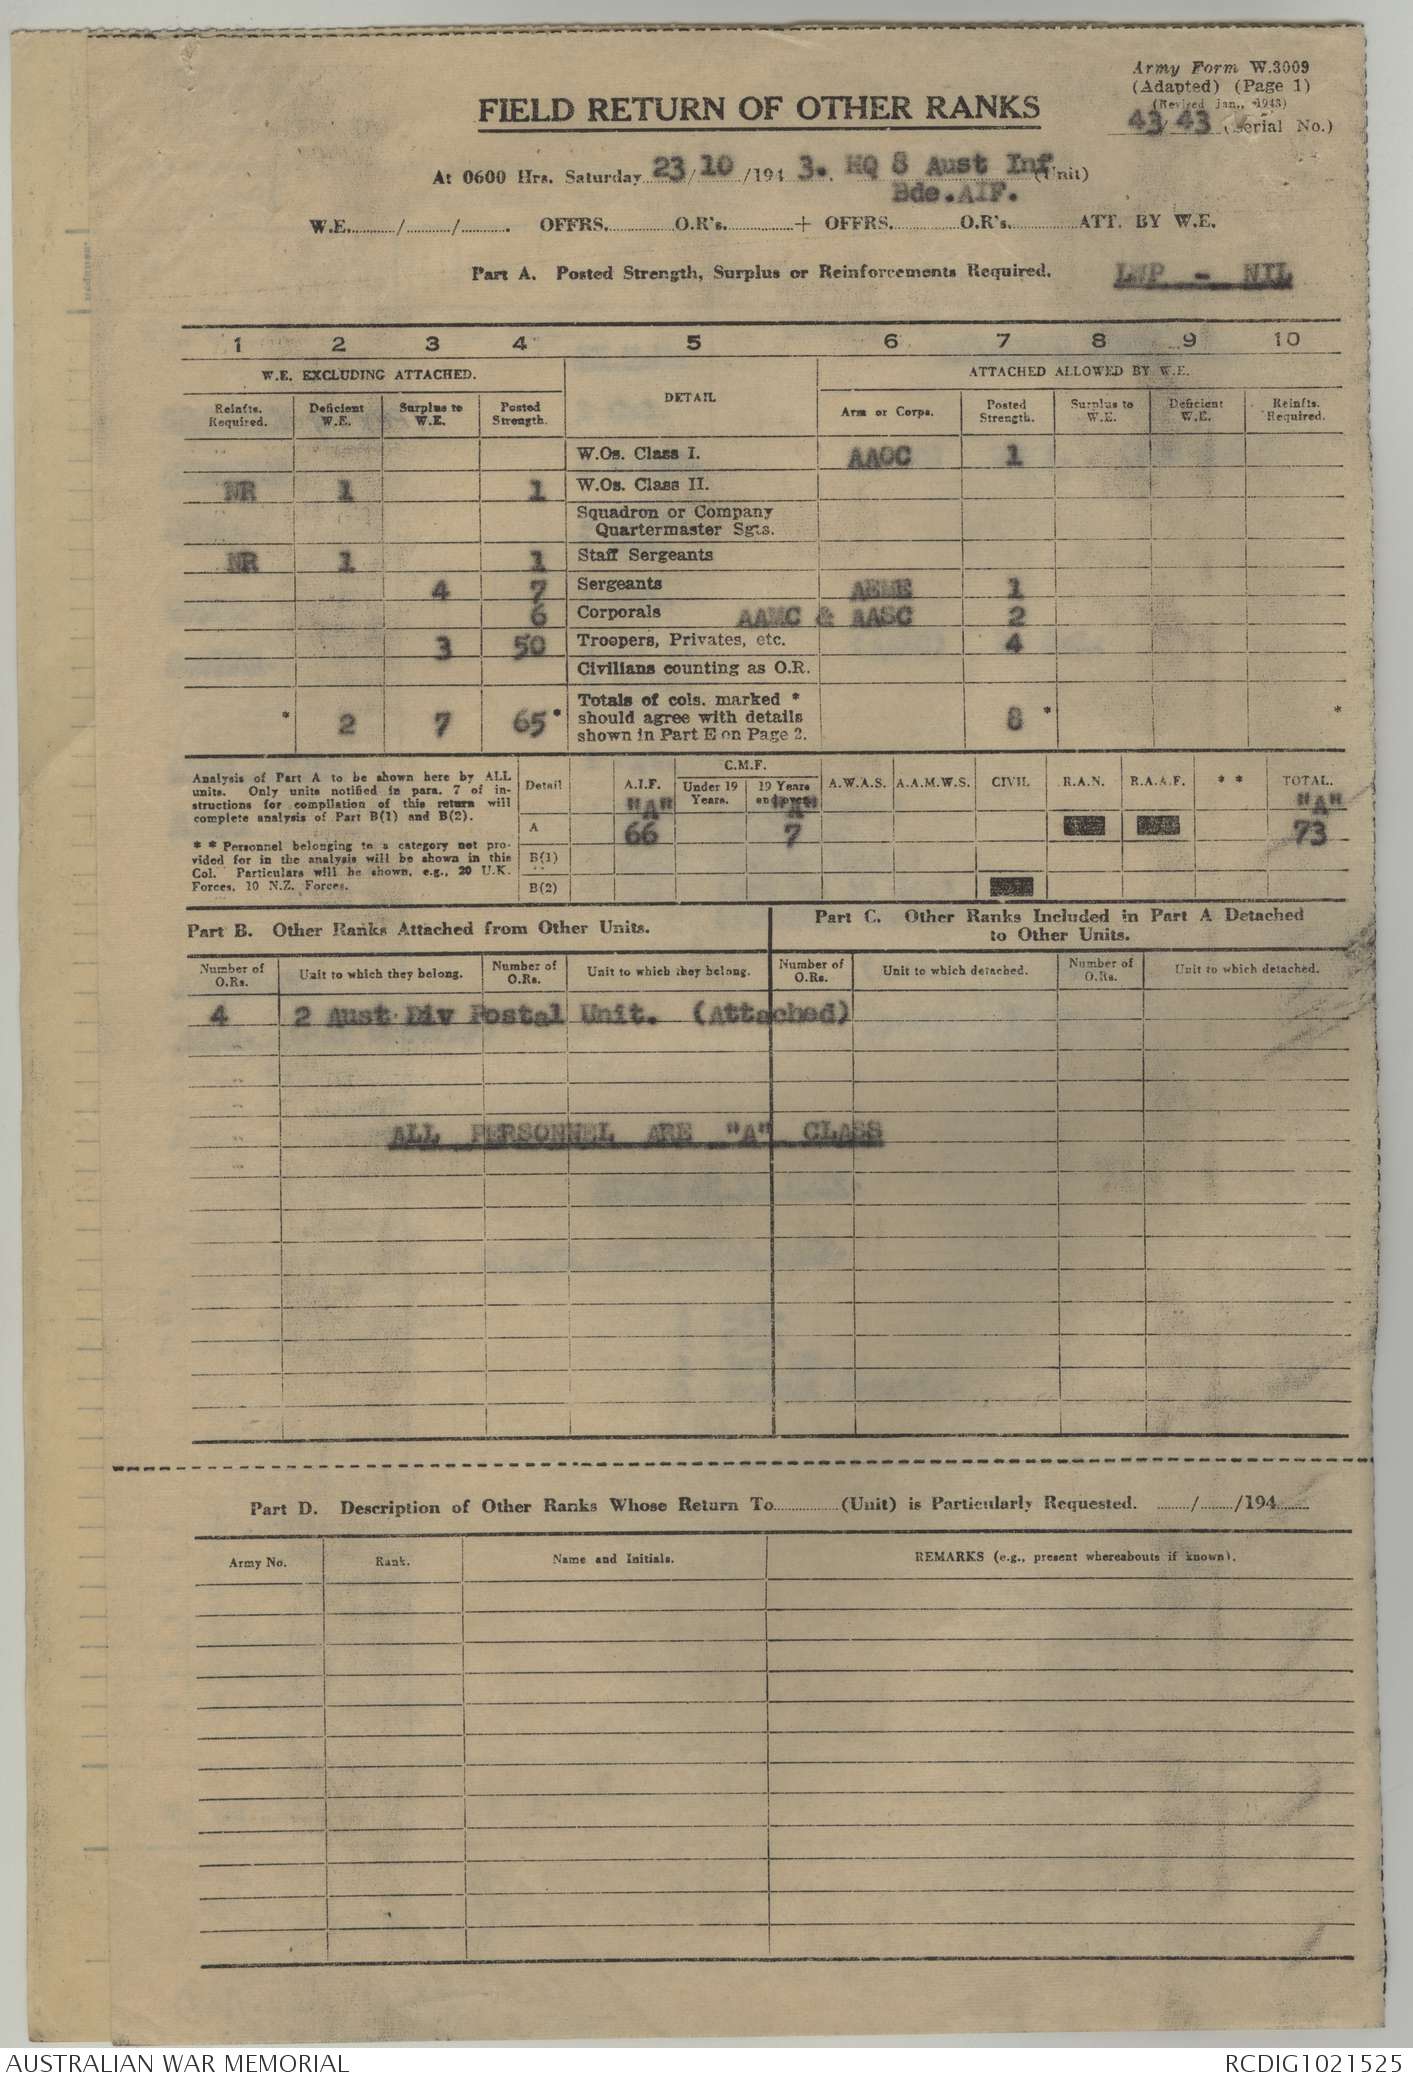 Army Form W.3009
(Adapted) (Page 1)
(Revised jan., 1943)
43/43 (Serial No.)
FIELD RETURN OF OTHER RANKS
At 0600 Hrs. Saturday 23/10/194 3. HQ 8 Aust Inf (Unit)
Bde.AIF.
W.E. / / . OFFRS. O.R's. + OFFRS. O.R's. ATT. BY W.E.
Part A. Posted Strength, Surplus or Reinforcements Required. LWP - NIL
1 2 3 4 5 6 7 8 9 10
W.E. EXCLUDING ATTACHED. DETAIL ATTACHED ALLOWED BY W.E.
Reinfts. Required. Deficient W.E. Surplus to W.E. Posted Strength. Arm or Corps. Posted Strength. Surplus to W.E. Deficient W.E. Reinfts. Required.
W.Os. Class I. AAOC 1
NR 1 1 W.Os. Class II.
Squadron or Company
Quartermaster Sgts.
NR 1 1 Staff Sergeants
4 7 Sergeants AEME 1
6 Corporals AAMC & AASC 2
3 50 Troopers, Privates, etc. 4
Civilians counting as O.R.
* 2 7 65 * Totals of cols. marked * should agree with details shown in Part E on Page 2. 8 * *
Analysis of Part A to be shown here by ALL
units. Only units notified in para. 7 of in-
structions for compilation of this return will
complete analysis of Part B(1) and B(2).
* * Personnel belonging to a category not pro-
vided for in the analysis will be shown in this
Col. Particulars will be shown, e.g., 20 U.K.
Forces, 10 N.Z. Forces.
Detail A.I.F. C.M.F. Under 19 Years. 19 Years and over. A.W.A.S. A.A.M.W.S. CIVIL R.A.N. R.A.A.F. * * TOTAL.
"A" "A" "A"
A 66 7 73
B(1)
B(2)
Part B. Other Ranks Attached from Other Units.
Part C. Other Ranks Included in Part A Detached
to Other Units.
Number of O.Rs. Unit to which they belong. Number of O.Rs. Unit to which they belong. Number of O.Rs. Unit to which detached. Number of O.Rs. Unit to which detached.
4 2 Aust Div Postal Unit. (Attached)
ALL PERSONNEL ARE "A" CLASS
Part D. Description of Other Ranks Whose Return To (Unit) is Particularly Requested. / /194
Army No. Rank. Name and Initials. REMARKS (e.g., present whereabouts if known).
AUSTRALIAN WAR MEMORIAL RCDIG1021525